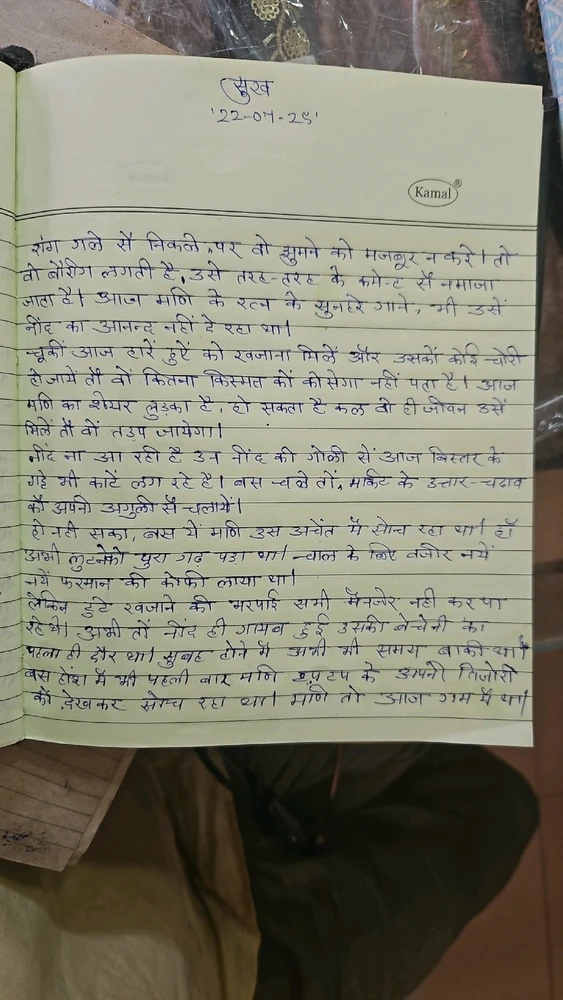 सुख
'22-07-25'
Kamal®
राग गले सै निकले, पर वो झुमने को मजबूर न करे। तो
वो बोरींग लगती है, उसे तरह-तरह के कमेन्ट सै नमाजा
जाता है। आज मणि के रत्न के सुनहरे गाने, भी उसें
नींद का आनन्द नहीं दे रहा था।
चूकीं आज हारें हुऐं को खजाना मिलें और उसकों कोई चोरी
हो जायें तौ वों कितना किस्मत कों कोसेगा नहीं पता है। आज
मणि का शेयर लुड़का है, हो सकता है कल वो ही जीवन उसें
मिलें तौ वों तड़प जायेगा।
नींद ना आ रही है उन नींद की गोली सें आज बिस्तर के
गद्दे भी काटें लग रहे है। बस चले तों, मार्केट के उत्तार-चढाव
कौ अपनी अगुली सैं चलायें।
हो नही सका, बस यें मणि उस अचेंत मैं सोच रहा था। हाँ
अभी लुटनेको पुरा गढ़ पड़ा था। चाल के लिए वजीर नयें
नयें फरमान की कॉफी लाया था।
लेकिन टुटे खजाने की भरपाई सभी मैंनजेर नही कर पा
रहे थे। अभी तों नींद ही गायब हुई उसकी बेचेनी का
पहला ही दौर था। सुबह होने में अभी भी समय बाकी था।
बस होंश मैं भी पहली बार मणि के अपनी तिजोरी
कों देखकर सोच रहा था। मणि तो आज गम मैं था।